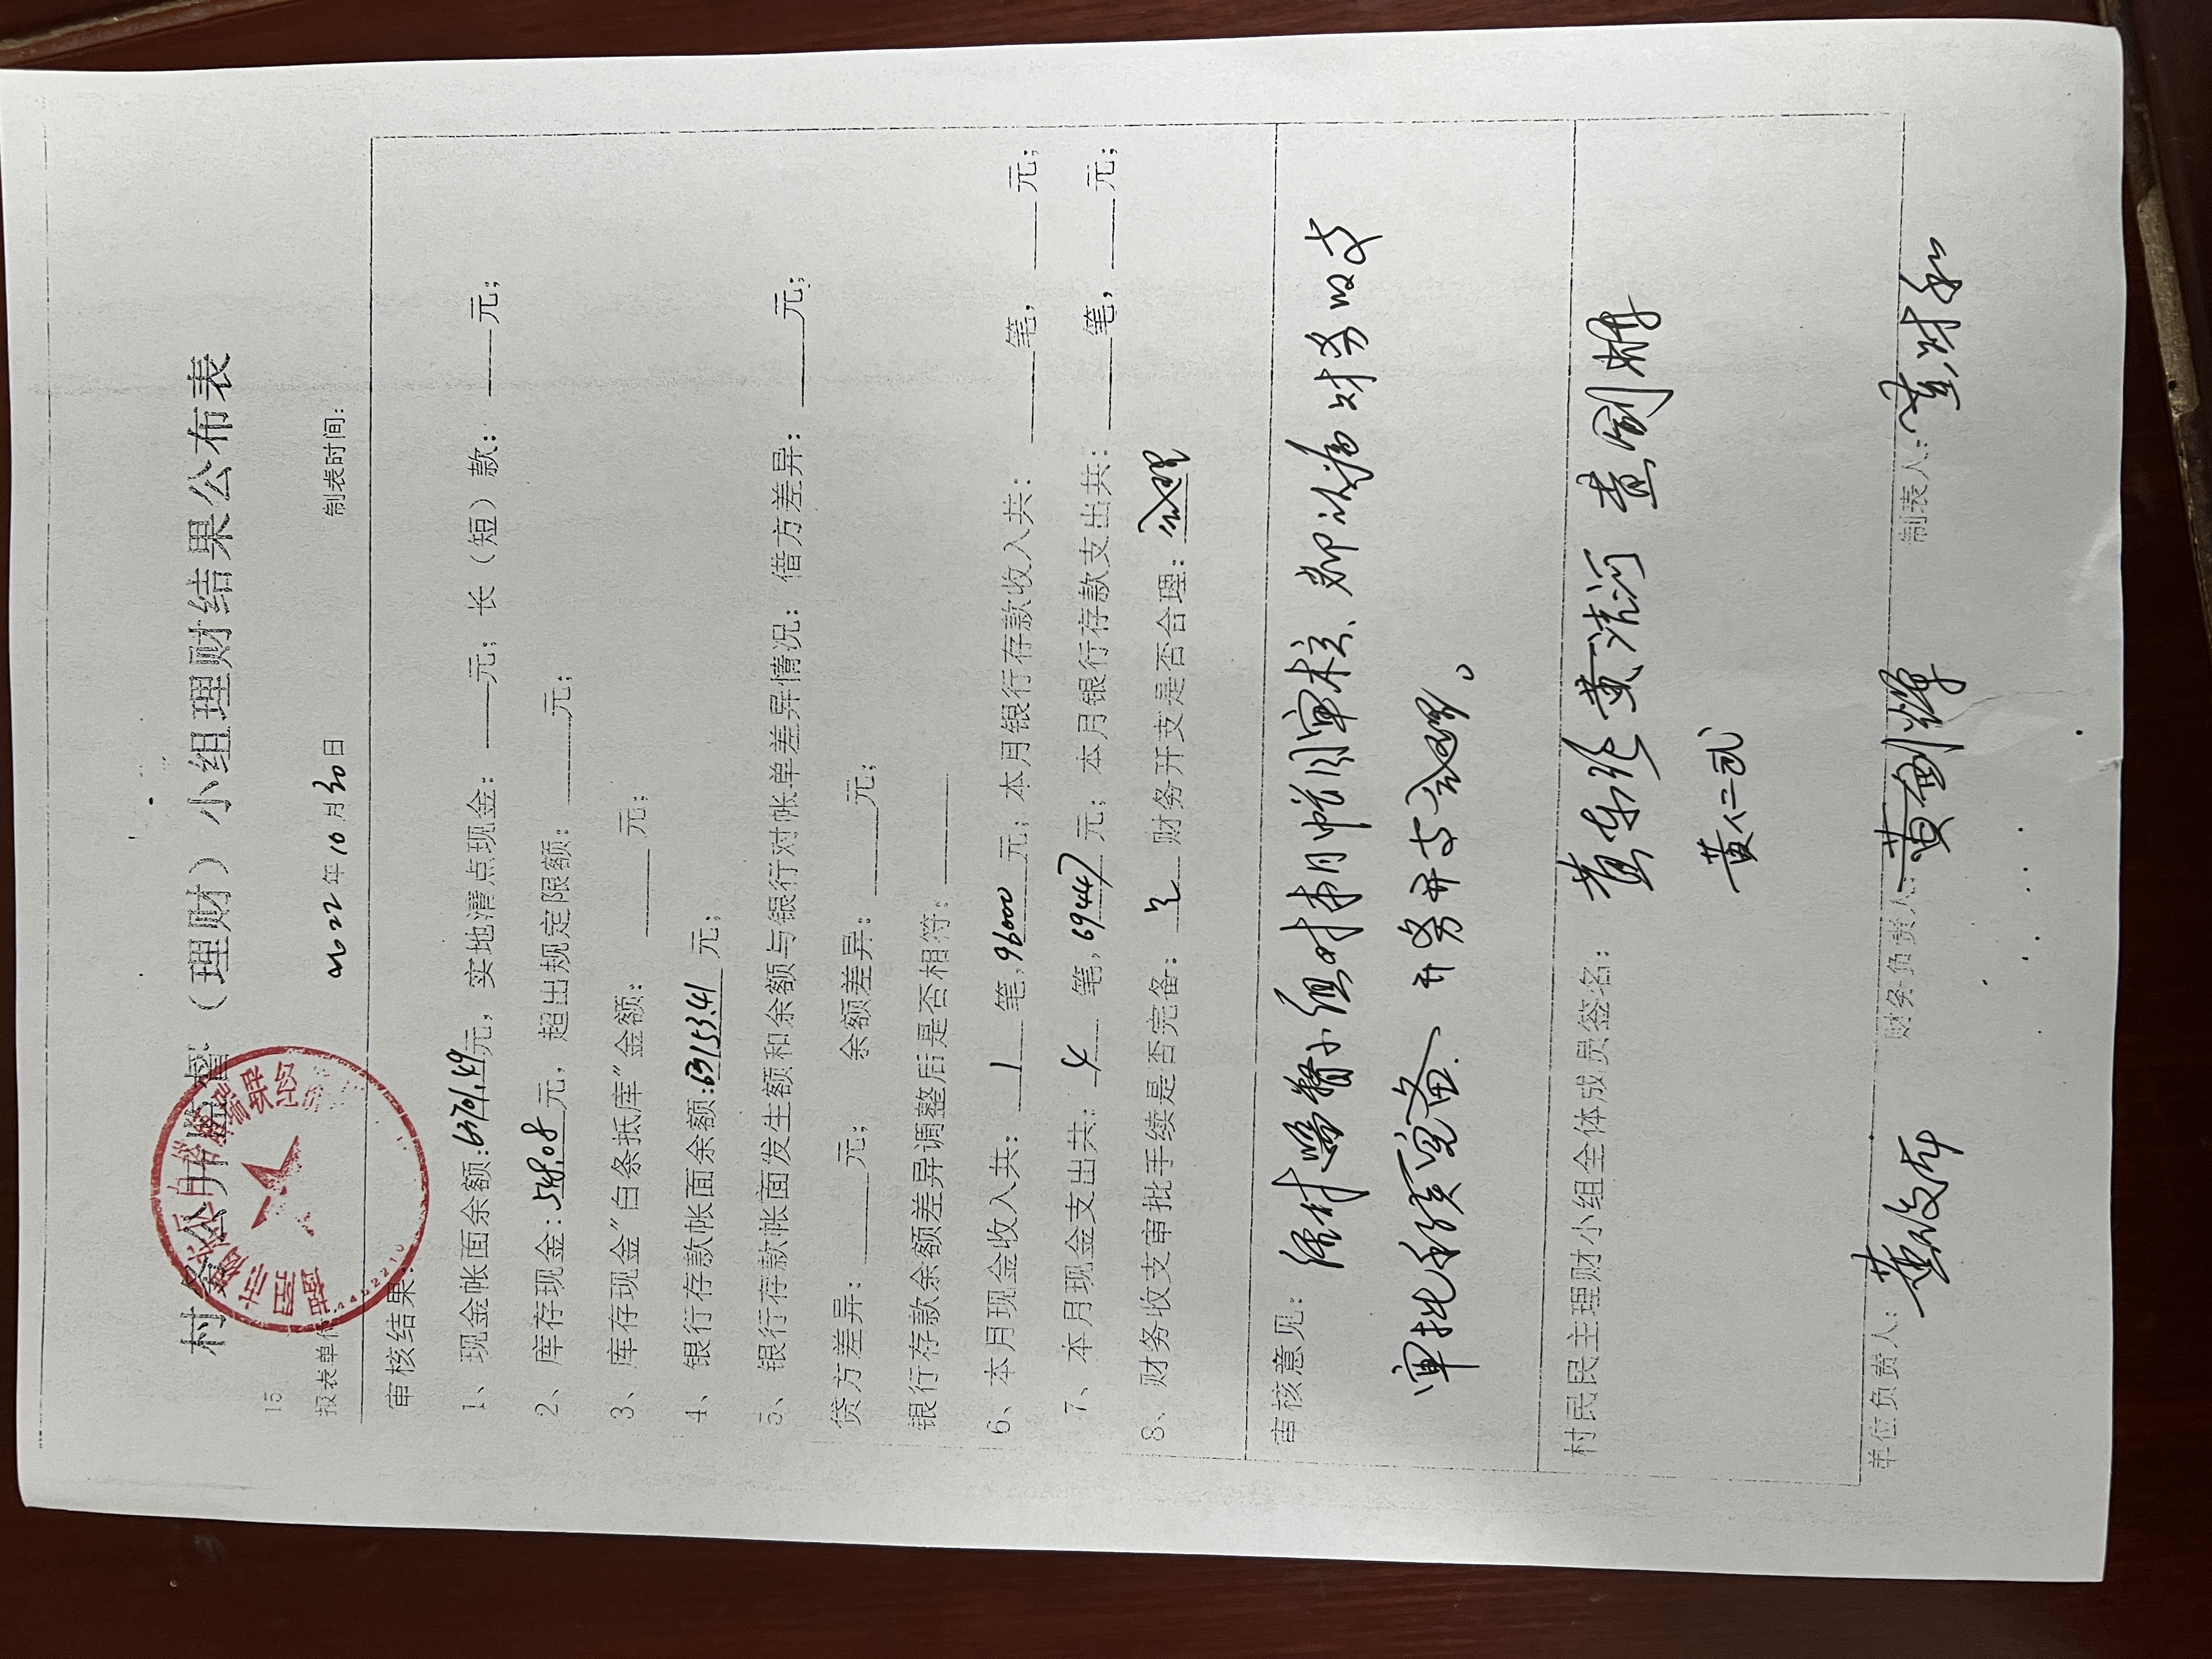 村务公开监督（理财）小组理财结果公布表
15
报表单位 2022年10月30日 制表时间:
审核结果:
1、现金帐面余额:63701.49元, 实地清点现金: 元; 长（短）款: 元;
2、库存现金:548.08元, 超出规定限额: 元;
3、库存现金"白条抵库"金额: 元;
4、银行存款帐面余额:63153.41元;
5、银行存款帐面发生额和余额与银行对帐单差异情况: 借方差异: 元;
贷方差异: 元; 余额差异: 元;
银行存款余额差异调整后是否相符:
6、本月现金收入共: 1 笔,96000元; 本月银行存款收入共: 笔, 元;
7、本月现金支出共: 4 笔,69447元; 本月银行存款支出共: 笔, 元;
8、财务收支审批手续是否完备: 是 财务开支是否合理: 合理
审核意见: 经村监督小组对本月帐目审核、都认为财务收支
审批手续完备、财务开支合理。
村民民主理财小组全体成员签名: 黄清河
黄仁武
单位负责人: 黄俊本 财务负责人: 黄剑辉 制表人: 黄财和